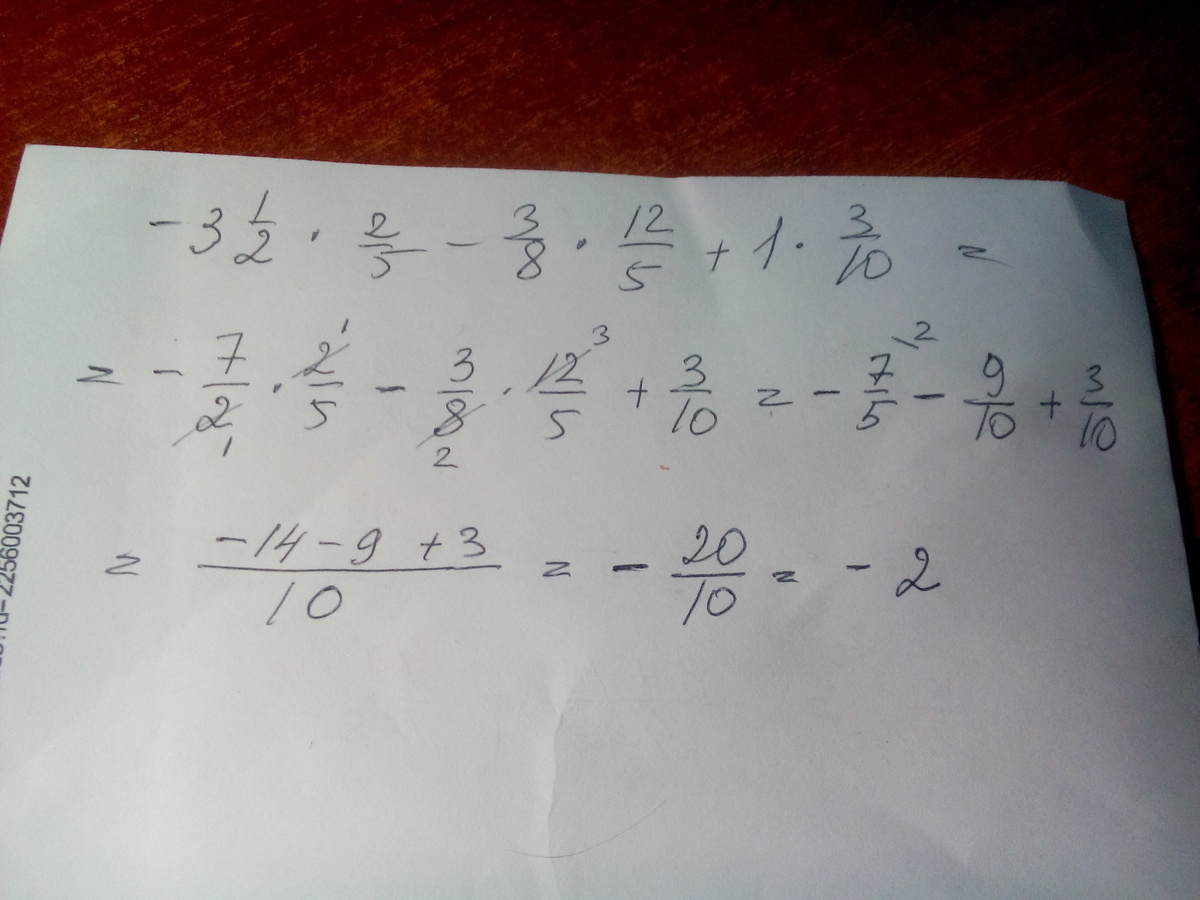 -3 1/2 · 2/5 - 3/8 · 12/5 + 1 · 3/10 =
= - 7/2 1 · 2 1/5 - 3/8 2 · 12 3/5 + 3/10 = - 7/5 \2 - 9/10 + 3/10
= -14-9+3/10 = - 20/10 = - 2
=2256003712